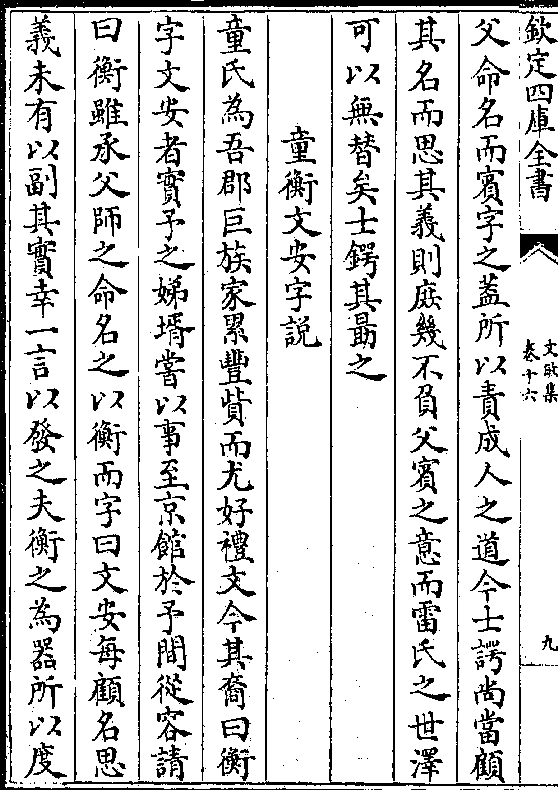 欽定四庫全書
文敏集
卷十六
九
父命名而賓字之葢所以責成人之道今士諤尚當顧
其名而思其義則庶幾不負父賓之意而雷氏之世澤
可以無替矣士鍔其勗之
童衡文安字説
童氏為吾郡巨族家累豐貲而尤好禮文今其裔曰衡
字文安者實予之娣壻嘗以事至京館於予間從容請
曰衡雖承父師之命名之以衡而字曰文安每顧名思
義未有以副其實幸一言以發之夫衡之為器所以度